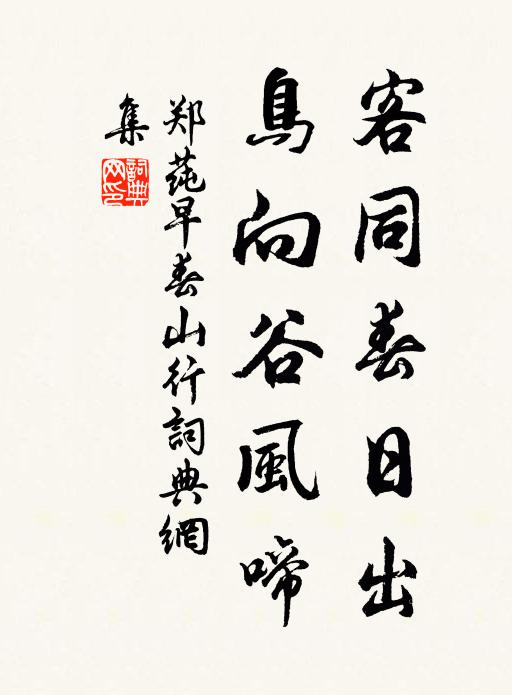 客同春日出
鳥向谷風啼
郑莼早春山行詞典網
集
詞典
网印